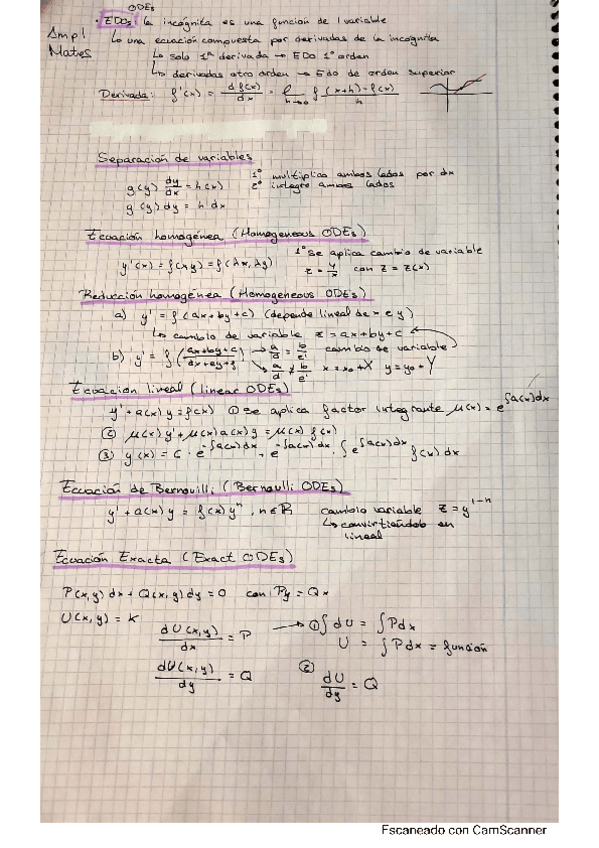 ODEs
Ampl
Mates
• EDOs: la incógnita es una función de 1 variable
↳ una ecuación compuesta por derivadas de la incógnita
↳ solo 1ª derivada → EDO 1º orden
↳ derivadas otro orden → Edo de orden superior
Derivada: f'(x) = df(x)/dx = l h→0 f(x+h)-f(x)/h
Separación de variables
g(y) dy/dx = h(x)
1º multiplica ambos lados por dx
g(y) dy = h dx
2º integro ambos lados
Ecuación homogénea (Homogeneous ODEs)
y'(x) = f(x,y) = f(λx, λy)
1º se aplica cambio de variable
z = y/x con z = z(x)
Reducción homogénea (Homogeneous ODEs)
a) y' = f(ax+by+c) (depende lineal de x e y)
↳ cambio de variable z = ax+by+c
b) y' = f(ax+by+c/dx+ey+f) → a/d = b/e' cambio de variable
→ a/d ≠ b/e' x = x0+X y = y0+Y
Ecuación lineal (linear ODEs)
y' + a(x) y = f(x) ① se aplica factor integrante μ(x) = e^∫a(x)dx
② μ(x) y' + μ(x) a(x) y = μ(x) f(x)
③ y(x) = C · e^-∫a(x)dx + e^-∫a(x)dx · ∫ e^∫a(x)dx f(x) dx
Ecuación de Bernouilli (Bernoulli ODEs)
y' + a(x) y = f(x) y^n, n ∈ ℝ
cambio variable z = y^1-n
↳ convirtiéndob en
lineal
Ecuación Exacta (Exact ODEs)
P(x,y) dx + Q(x,y) dy = 0 con Py = Qx
U(x,y) = K
dU(x,y)/dx = P → ① ∫ dU = ∫ P dx
U = ∫ P dx = función
dU(x,y)/dy = Q
② dU/dy = Q
Escaneado con CamScanner